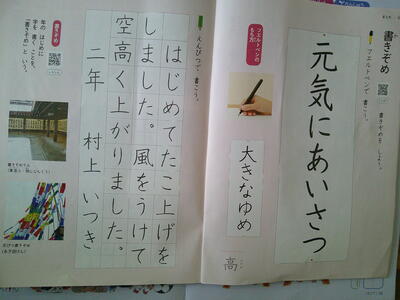 書きぞめ
書きぞめを しよう。
フェルトペンで 書こう。
元気にあいさつ
フェルトペンの
もち方
大きなゆめ
高
えんぴつで 書こう。
はじめてたこ上げを
しました。風をうけて
空高く上がりました。
二年 村上 いつき
書きぞめ
年の はじめに
字を 書く ことを、
「書きぞめ」と いう。